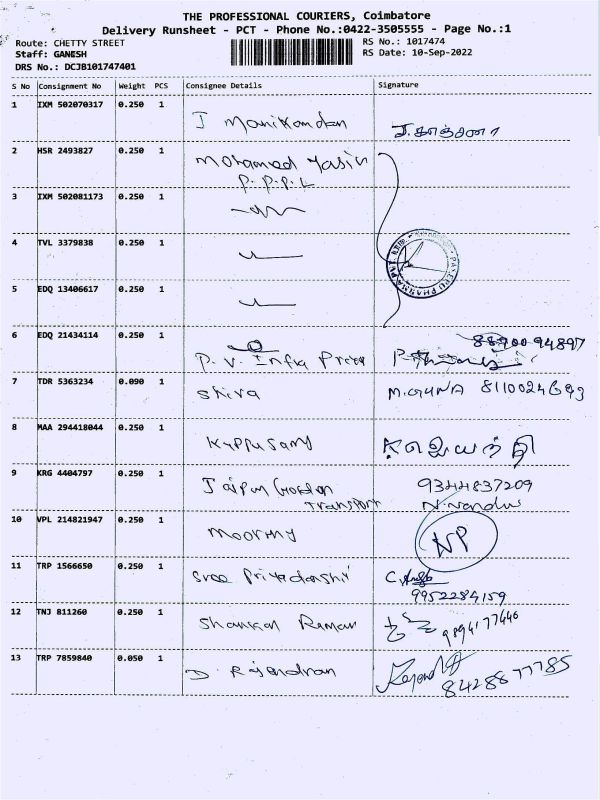 THE PROFESSIONAL COURIERS, Coimbatore
Delivery Runsheet - PCT - Phone No.:0422-3505555 - Page No.:1
Route: CHETTY STREET
RS No.: 1017474
Staff: GANESH
RS Date: 10-Sep-2022
DRS No.: DCJB101747401
S No Consignment No Weight PCS Consignee Details Signature
1 IXM 502070317 0.250 1
J Manikandan
2 HSR 2493827 0.250 1
Mohamed Yasin
P.P.P.L
3 IXM 502081173 0.250 1
4 TVL 3379838 0.250 1
5 EDQ 13406617 0.250 1
6 EDQ 21434114 0.250 1
P.V. Infra
7 TDR 5363234 0.090 1
Shiva M.GUNA
8 MAA 294418044 0.250 1
Kuppusamy
9 KRG 4404797 0.250 1
Jaipur Golden 9344837209
Transport
10 VPL 214821947 0.250 1
Moorthy NP
11 TRP 1566650 0.250 1
Sree Priyadarshi
9952284159
12 TNJ 811260 0.250 1
Shankar Raman 9894177446
13 TRP 7859840 0.050 1
D. Rajendran
8428877785